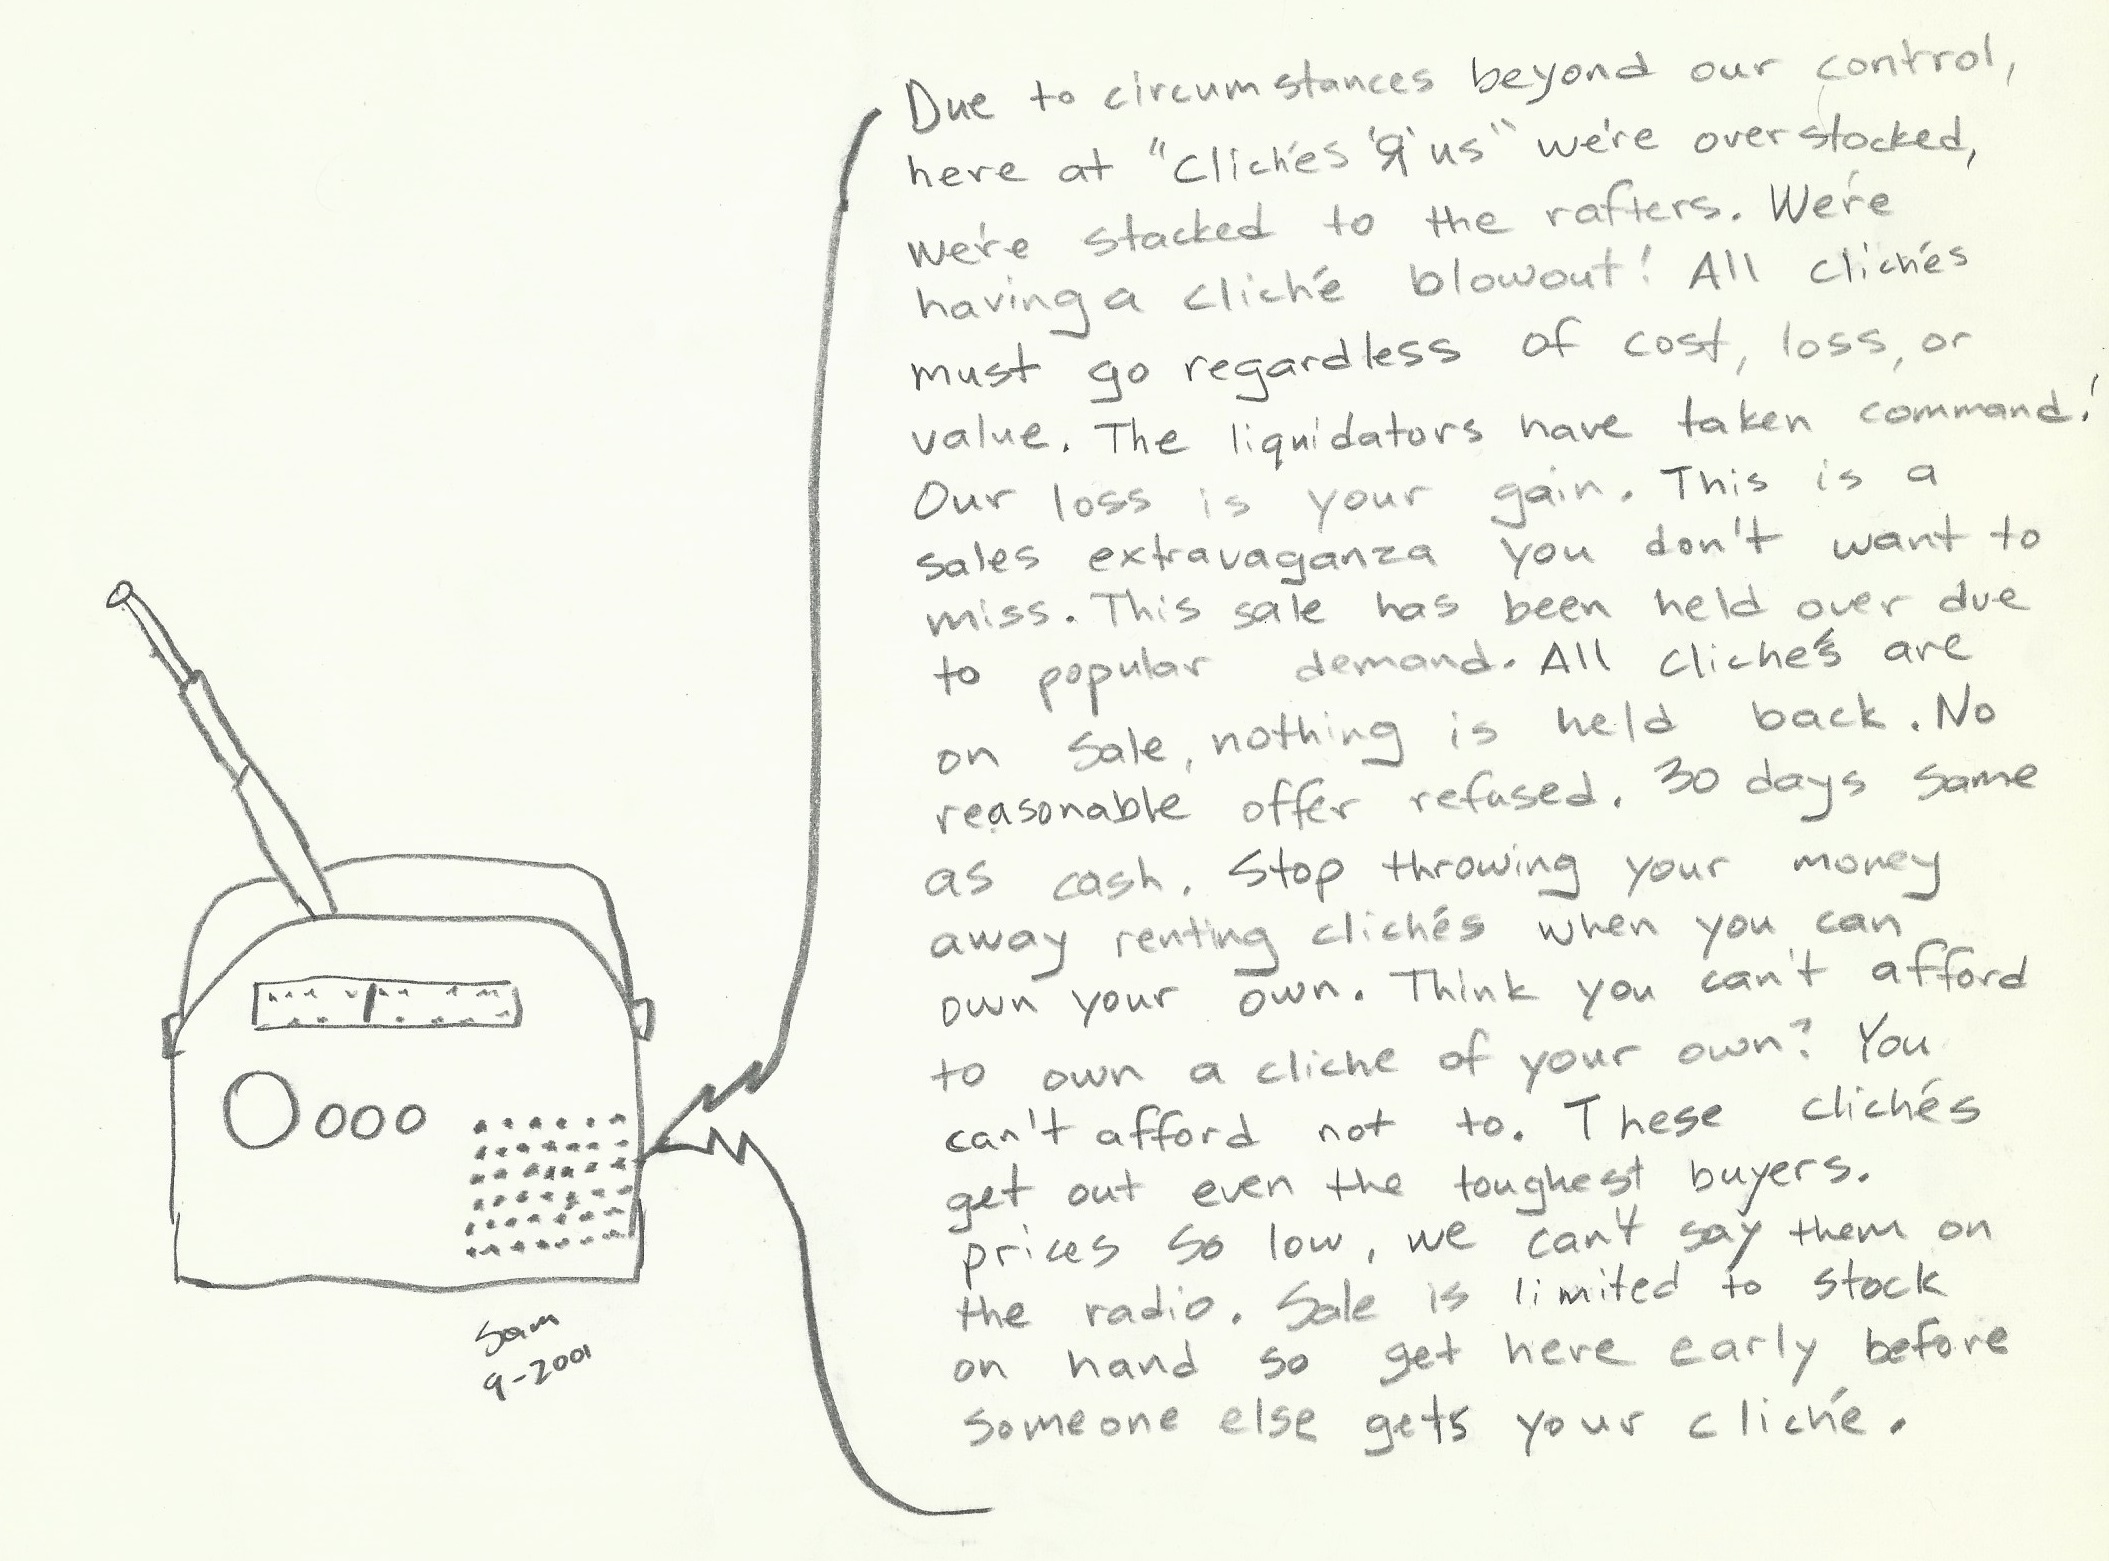 Due to circumstances beyond our control,
here at "Clichés 'Я' us" we're overstocked,
we're stacked to the rafters. We're
having a cliché blowout! All clichés
must go regardless of cost, loss, or
value. The liquidators have taken command!
Our loss is your gain. This is a
sales extravaganza you don't want to
miss. This sale has been held over due
to popular demand. All clichés are
on sale, nothing is held back. No
reasonable offer refused. 30 days same
as cash. Stop throwing your money
away renting clichés when you can
own your own. Think you can't afford
to own a cliche of your own? You
can't afford not to. These clichés
get out even the toughest buyers.
prices so low, we can't say them on
the radio. Sale is limited to stock
on hand so get here early before
someone else gets your cliché.
Sam
9-2001